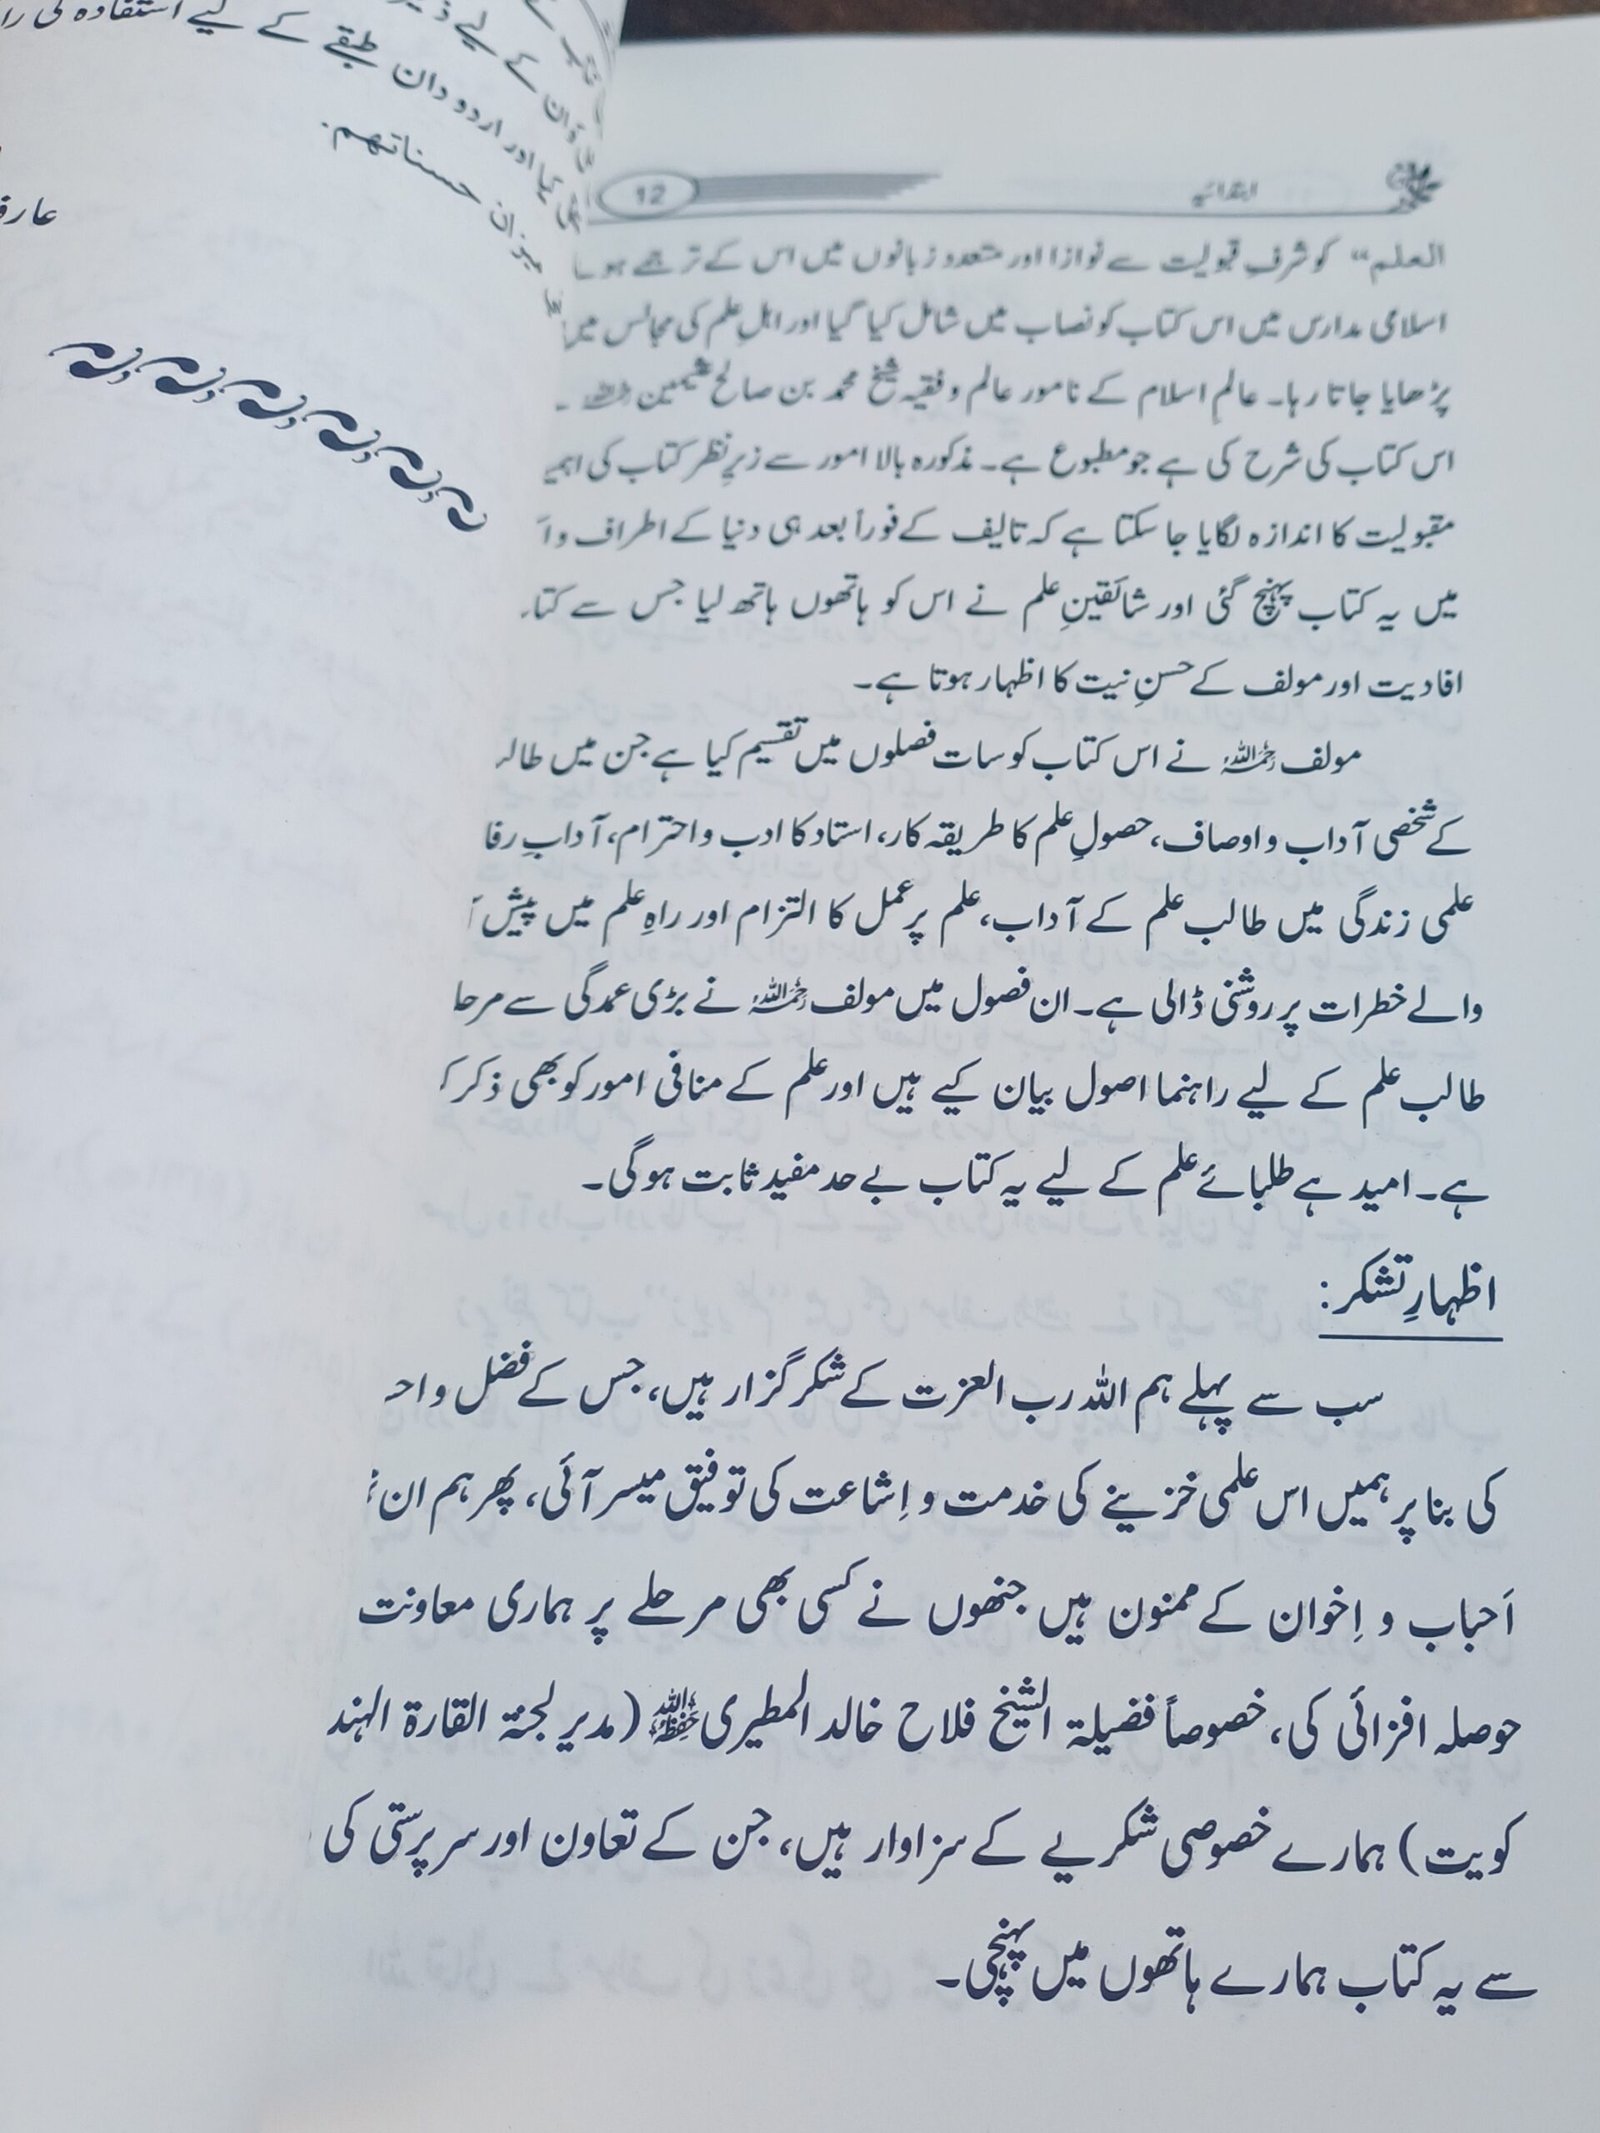 ابتدائیہ
12
العلم“ کو شرفِ قبولیت سے نوازا اور متعدد زبانوں میں اس کے ترجمے
اسلامی مدارس میں اس کتاب کو نصاب میں شامل کیا گیا اور اہلِ علم کی مجالس میں
پڑھایا جاتا رہا۔ عالمِ اسلام کے نامور عالم و فقیہ شیخ محمد بن صالح عثیمین رحمہ اللہ
اس کتاب کی شرح کی ہے جو مطبوع ہے۔ مذکورہ بالا امور سے زیرِ نظر کتاب کی
مقبولیت کا اندازہ لگایا جا سکتا ہے کہ تالیف کے فوراً بعد ہی دنیا کے اطراف و
میں یہ کتاب پہنچ گئی اور شائقینِ علم نے اس کو ہاتھوں ہاتھ لیا جس سے
افادیت اور مولف کے حسنِ نیت کا اظہار ہوتا ہے۔
مولف رحمہ اللہ نے اس کتاب کو سات فصلوں میں تقسیم کیا ہے جن میں
کے شخصی آداب و اوصاف، حصولِ علم کا طریقہ کار، استاد کا ادب و احترام، آدابِ
علمی زندگی میں طالب علم کے آداب، علم پر عمل کا التزام اور راہِ علم میں پیش
والے خطرات پر روشنی ڈالی ہے۔ ان فصول میں مولف رحمہ اللہ نے بڑی عمدگی سے
طالب علم کے لیے راہنما اصول بیان کیے ہیں اور علم کے منافی امور کو بھی ذکر
ہے۔ امید ہے طلبائے علم کے لیے یہ کتاب بے حد مفید ثابت ہوگی۔
اظہارِ تشکر:
سب سے پہلے ہم اللہ رب العزت کے شکر گزار ہیں، جس کے فضل و
کی بنا پر ہمیں اس علمی خزینے کی خدمت و اِشاعت کی توفیق میسر آئی، پھر ہم ان
اَحباب و اِخوان کے ممنون ہیں جنھوں نے کسی بھی مرحلے پر ہماری معاونت
حوصلہ افزائی کی، خصوصاً فضیلۃ الشیخ فلاح خالد المطیری حفظہ اللہ (مدیر لجنۃ القارۃ الہند
کویت) ہمارے خصوصی شکریے کے سزاوار ہیں، جن کے تعاون اور سرپرستی کی
سے یہ کتاب ہمارے ہاتھوں میں پہنچی۔
اور اردو دان طبقے کے لیے استفادہ کی
میزان حسناتھم.